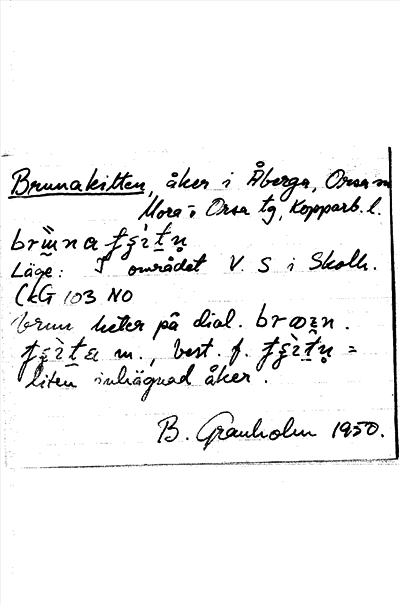 Brunakitten, åker i Åberga, Orsa sn
Mora o Orsa tg, Kopparb. l.
Läge: I området V. S i Skolh.
CkG 103 NO
brun heter på dial.
m., best. f. =
liten inhägnad åker.
B. Granholm 1950.